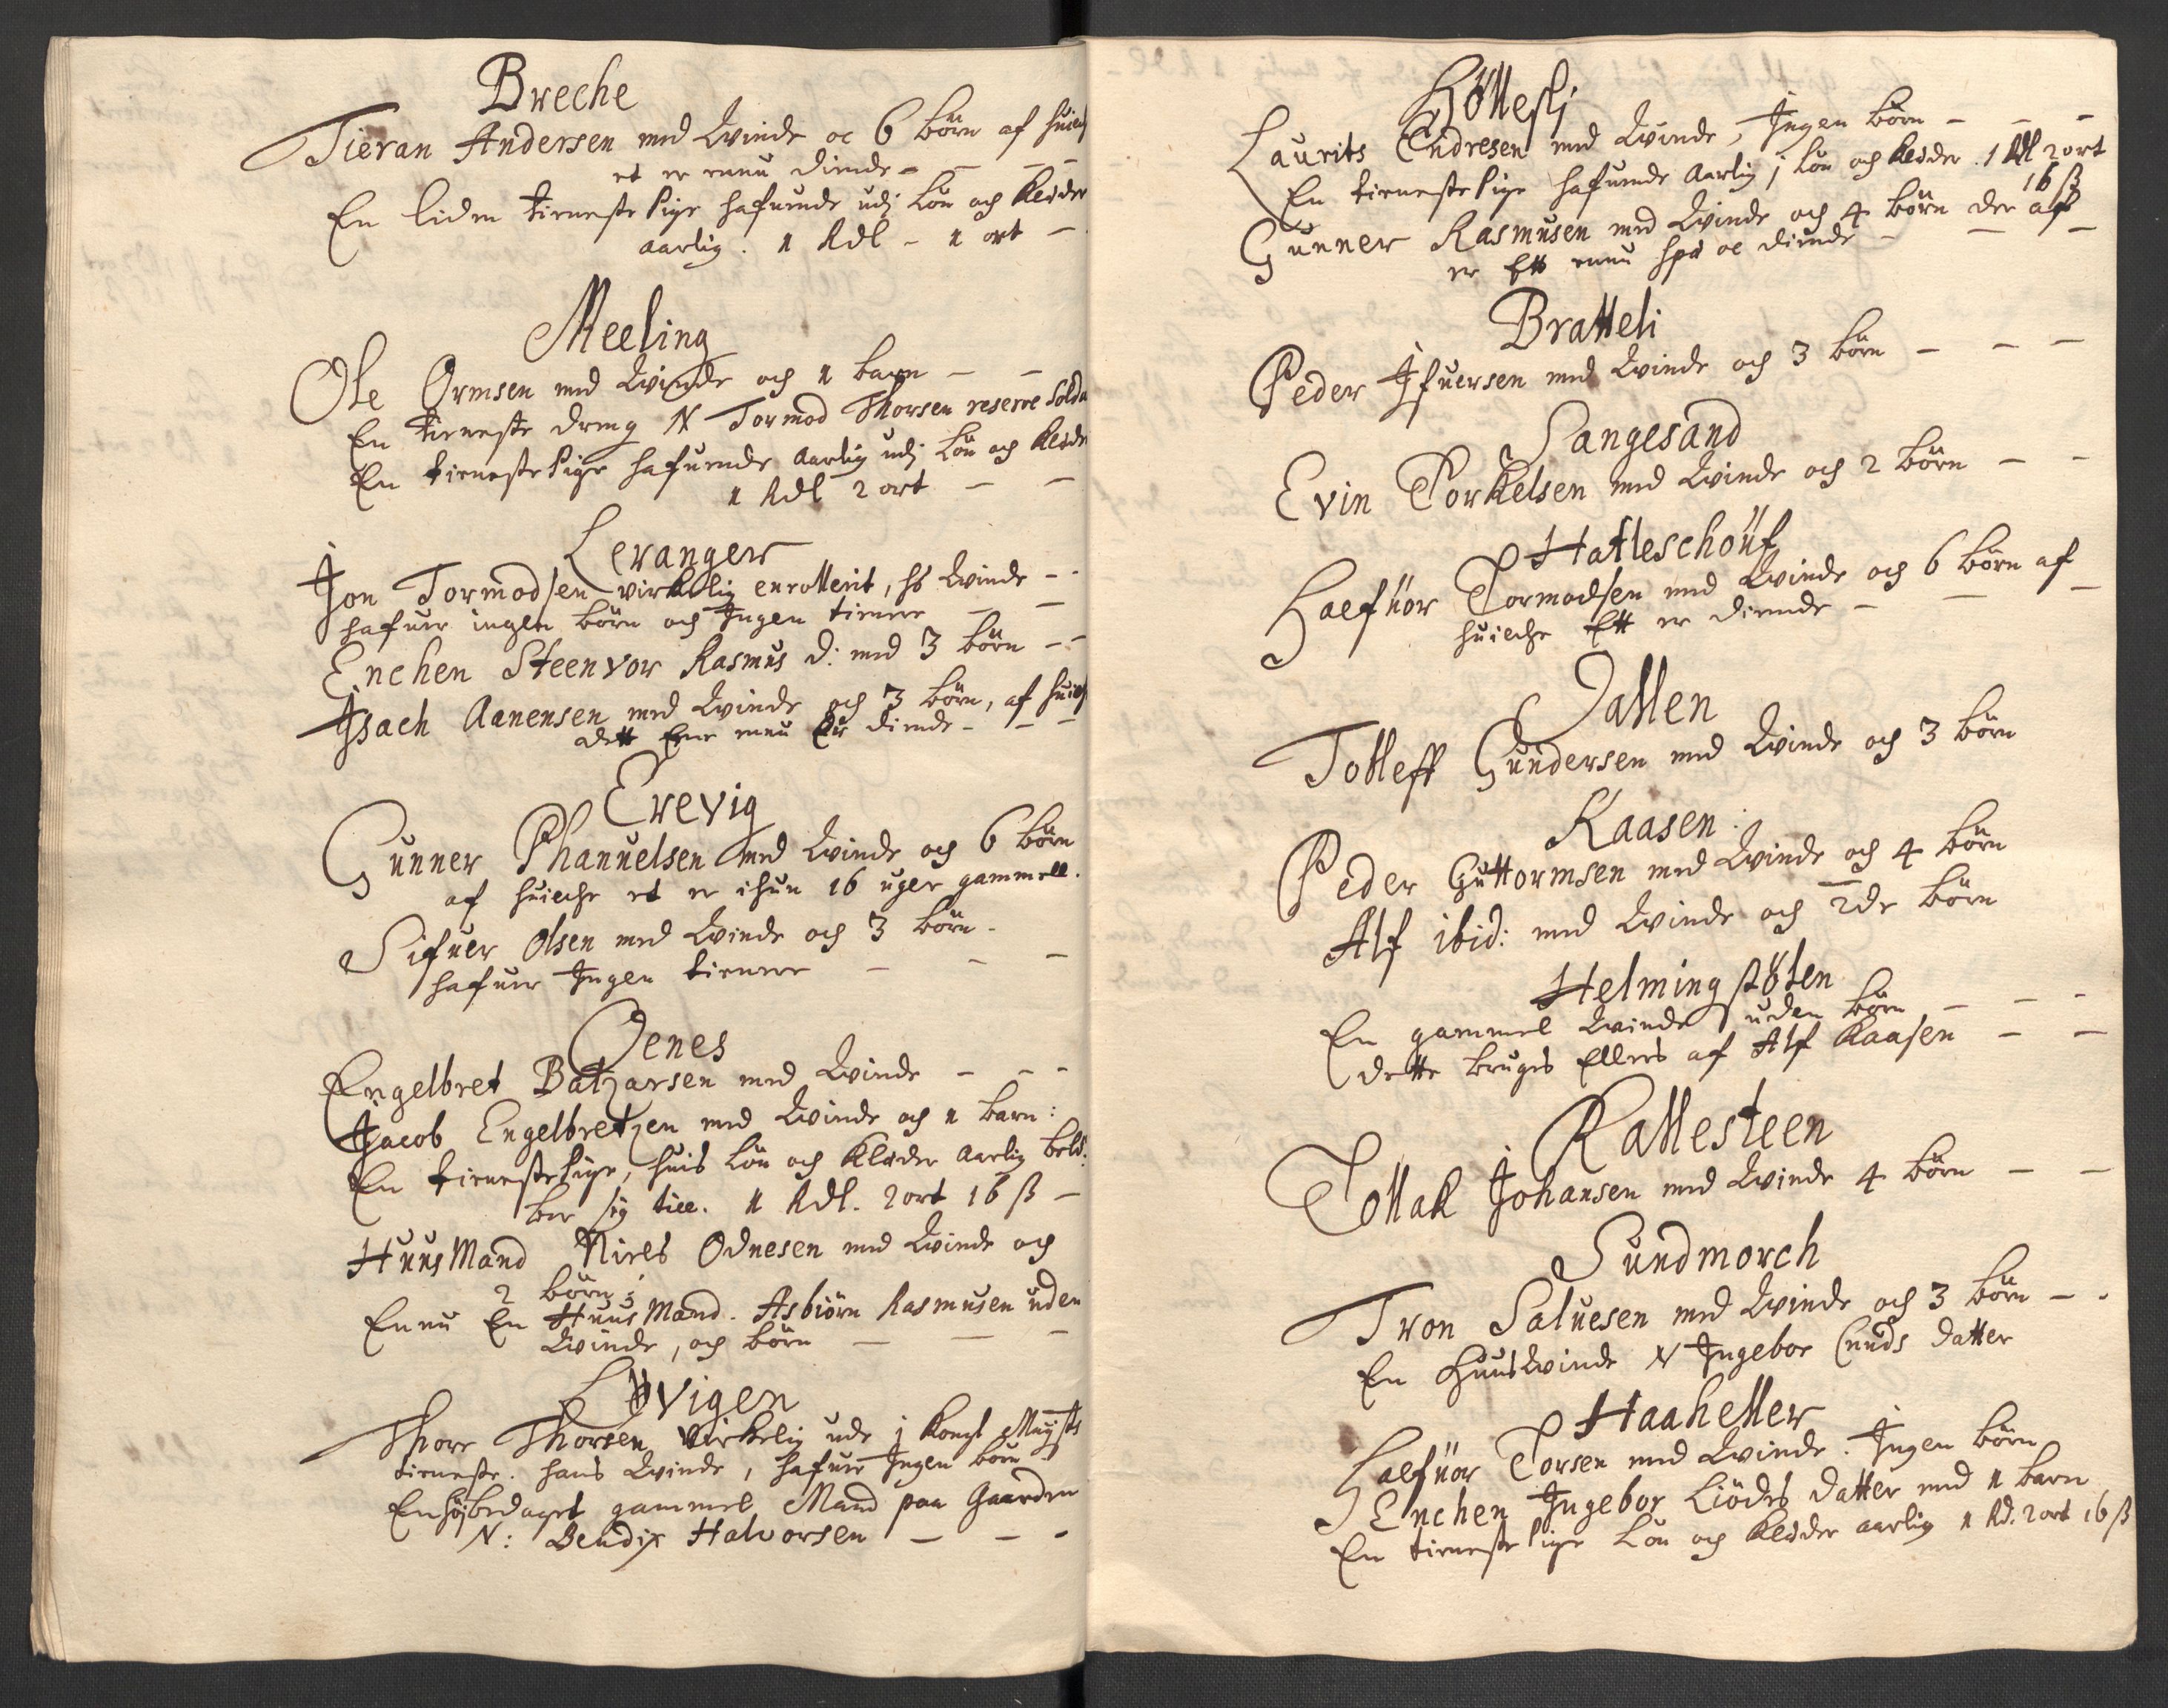 Breche
Tieran Andersen med Qvinde oc 6 börn af huilch
et er ennu diende - - -
En liden tieneste Pige hafuende udj Lön och Kleder
aarlig. 1 Rdl - 1 ort -
Meeling
Ole Ormsen med Qvinde och 1 barn - -
En tieneste dreng N Tormod Thorsen reserve Solda
En tieneste Pige hafuende aarlig udj Lön och Klede
1 Rdl 2 ort - -
Levanger
Jon Tormodsen virkelig enrollerit, hs Qvinde - -
hafuer ingen börn och Ingen tienere - -
Enchen Steenvor Rasmus d: med 3 börn - -
Isach Aanensen med Qvinde och 3 börn, af huilch
dett Ene ennu Er diende - - -
Erevig
Gunner Phanuelsen med Qvinde och 6 börn
af huilche et er ichun 16 uger gammell.
Sifuer Olsen med Qvinde och 3 börn -
hafuer Ingen tienere - - -
Oenes
Engelbret Batzarsen med Qvinde - - -
Jacob Engelbretzen med Qvinde och 1 barn:
En tieneste Pige, huis Lön och Kleder aarlig belö:
ber sig till. 1 Rdl. 2 ort 16 ß -
Huus Mand Niels Odnesen med Qvinde och
2 börn;
Ennu En Huus Mand. Asbiörn Rasmusen uden
Qvinde, och börn - - -
Løvigen
Thore Thorsen Virkelig ude j Kongl Mayts
tieneste. hans Qvinde, hafuer Ingen börn
En høybedaget gammel Mand paa Gaarden
N: Bendix Halvorsen - - -
Høllesli
Laurits Endresen med Qvinde, Ingen börn - - -
En tieneste Pige hafuende aarlig j Lön och Kleder. 1 Rdl 2 ort
16 ß
Gunner Rasmusen med Qvinde och 4 börn der af
er Ett ennu spæ oc diende - - -
Bratteli
Peder Ifuersen med Qvinde och 3 börn - - -
Sangesand
Evin Torkelsen med Qvinde och 2 börn - -
Hatleschouf
Halfuor Tormodsen med Qvinde och 6 börn af
huilche Ett er diende - - -
Dallen
Tolleff Gundersen med Qvinde och 3 börn
Kaasen:
Peder Guttormsen med Qvinde och 4 börn
Alf ibid: med Qvinde och 2de börn
Helmingstølen
En gammel Qvinde uden börn - - -
dette bruges Ellers af Alf Kaasen - -
Rallesteen
Tollak Johansen med Qvinde 4 börn - -
Sundmorch
Tron Saluesen med Qvinde och 3 börn - -
En Huusqvinde N Ingebor Cnuds datter
Haaheller
Halfuor Torsen med Qvinde. Ingen börn
Enchen Ingebor Liødes datter med 1 barn
En tieneste Pige Lön och Kleder aarlig 1 Rd. 2 ort 16 ß